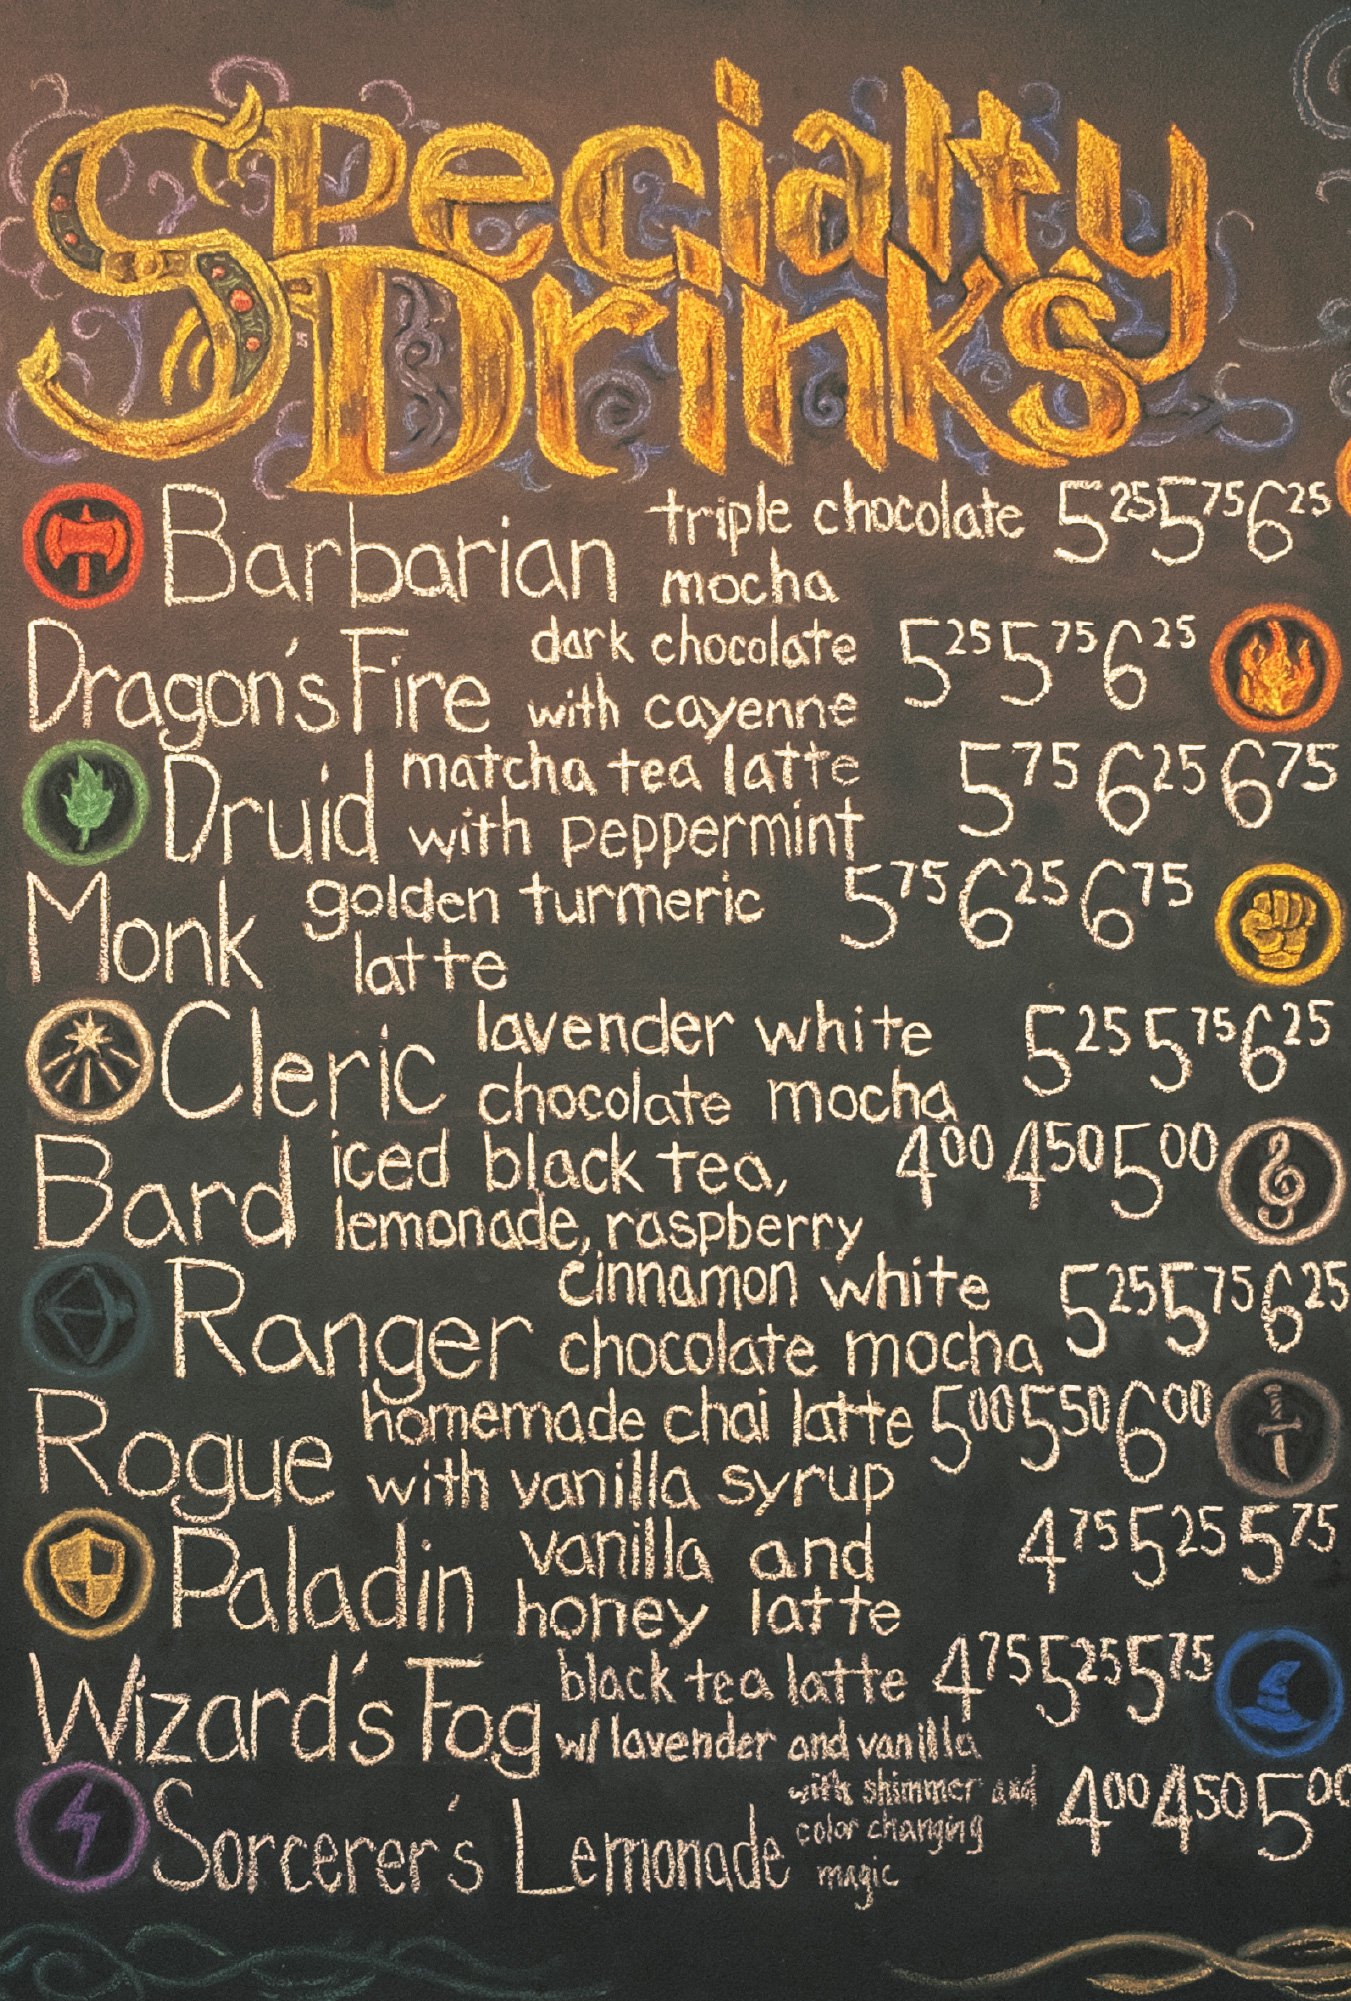 Specialty
Drinks
Barbarian triple chocolate 5 25 5 75 6 25
mocha
Dragon's Fire dark chocolate 5 25 5 75 6 25
with cayenne
Druid matcha tea latte 5 75 6 25 6 75
with peppermint
Monk golden turmeric 5 75 6 25 6 75
latte
Cleric lavender white 5 25 5 75 6 25
chocolate mocha
Bard iced black tea, 4 00 4 50 5 00
lemonade, raspberry
Ranger cinnamon white 5 25 5 75 6 25
chocolate mocha
Rogue homemade chai latte 5 00 5 50 6 00
with vanilla syrup
Paladin vanilla and 4 75 5 25 5 75
honey latte
Wizard's Fog black tea latte 4 75 5 25 5 75
w/ lavender and vanilla
Sorcerer's Lemonade with shimmer and 4 00 4 50 5 00
color changing
magic